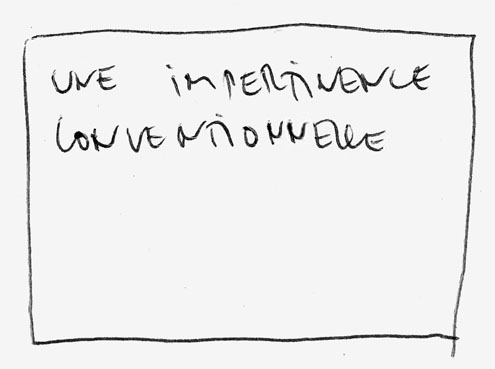 UNE IMPERTINENCE
CONVENTIONNELLE